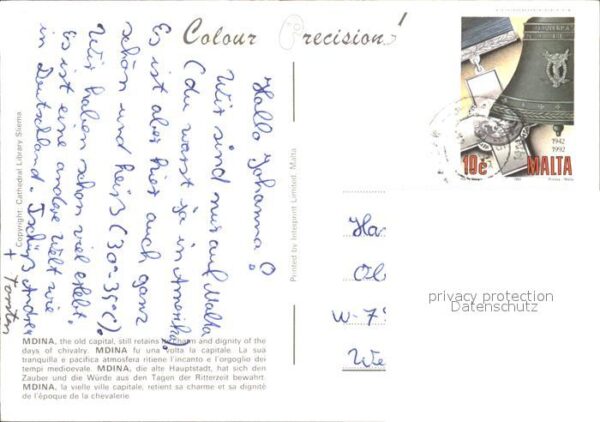 Colour Precision
Hallo Johanna!
Wir sind nur auf Malta
(du warst ja in Amerika)
Es ist aber hier auch ganz
schön und heiß (30-35°C).
Wir haben schon viel erlebt.
Es ist eine andere Welt wie
in Deutschland. Tschüß Andrea
+ Torsten
Copyright Cathedral Library Sliema
Printed by Interprint Limited, Malta
1942
1992
10c MALTA
Ha
W-7
We
privacy protection
Datenschutz
MDINA, the old capital, still retains its charm and dignity of the
days of chivalry. MDINA fu una volta la capitale. La sua
tranquilla e pacifica atmosfera ritiene l'incanto e l'orgoglio dei
tempi medioevale. MDINA, die alte Hauptstadt, hat sich den
Zauber und die Würde aus den Tagen der Ritterzeit bewahrt.
MDINA, la vielle ville capitale, retient sa charme et sa dignité
de l'époque de la chevalerie